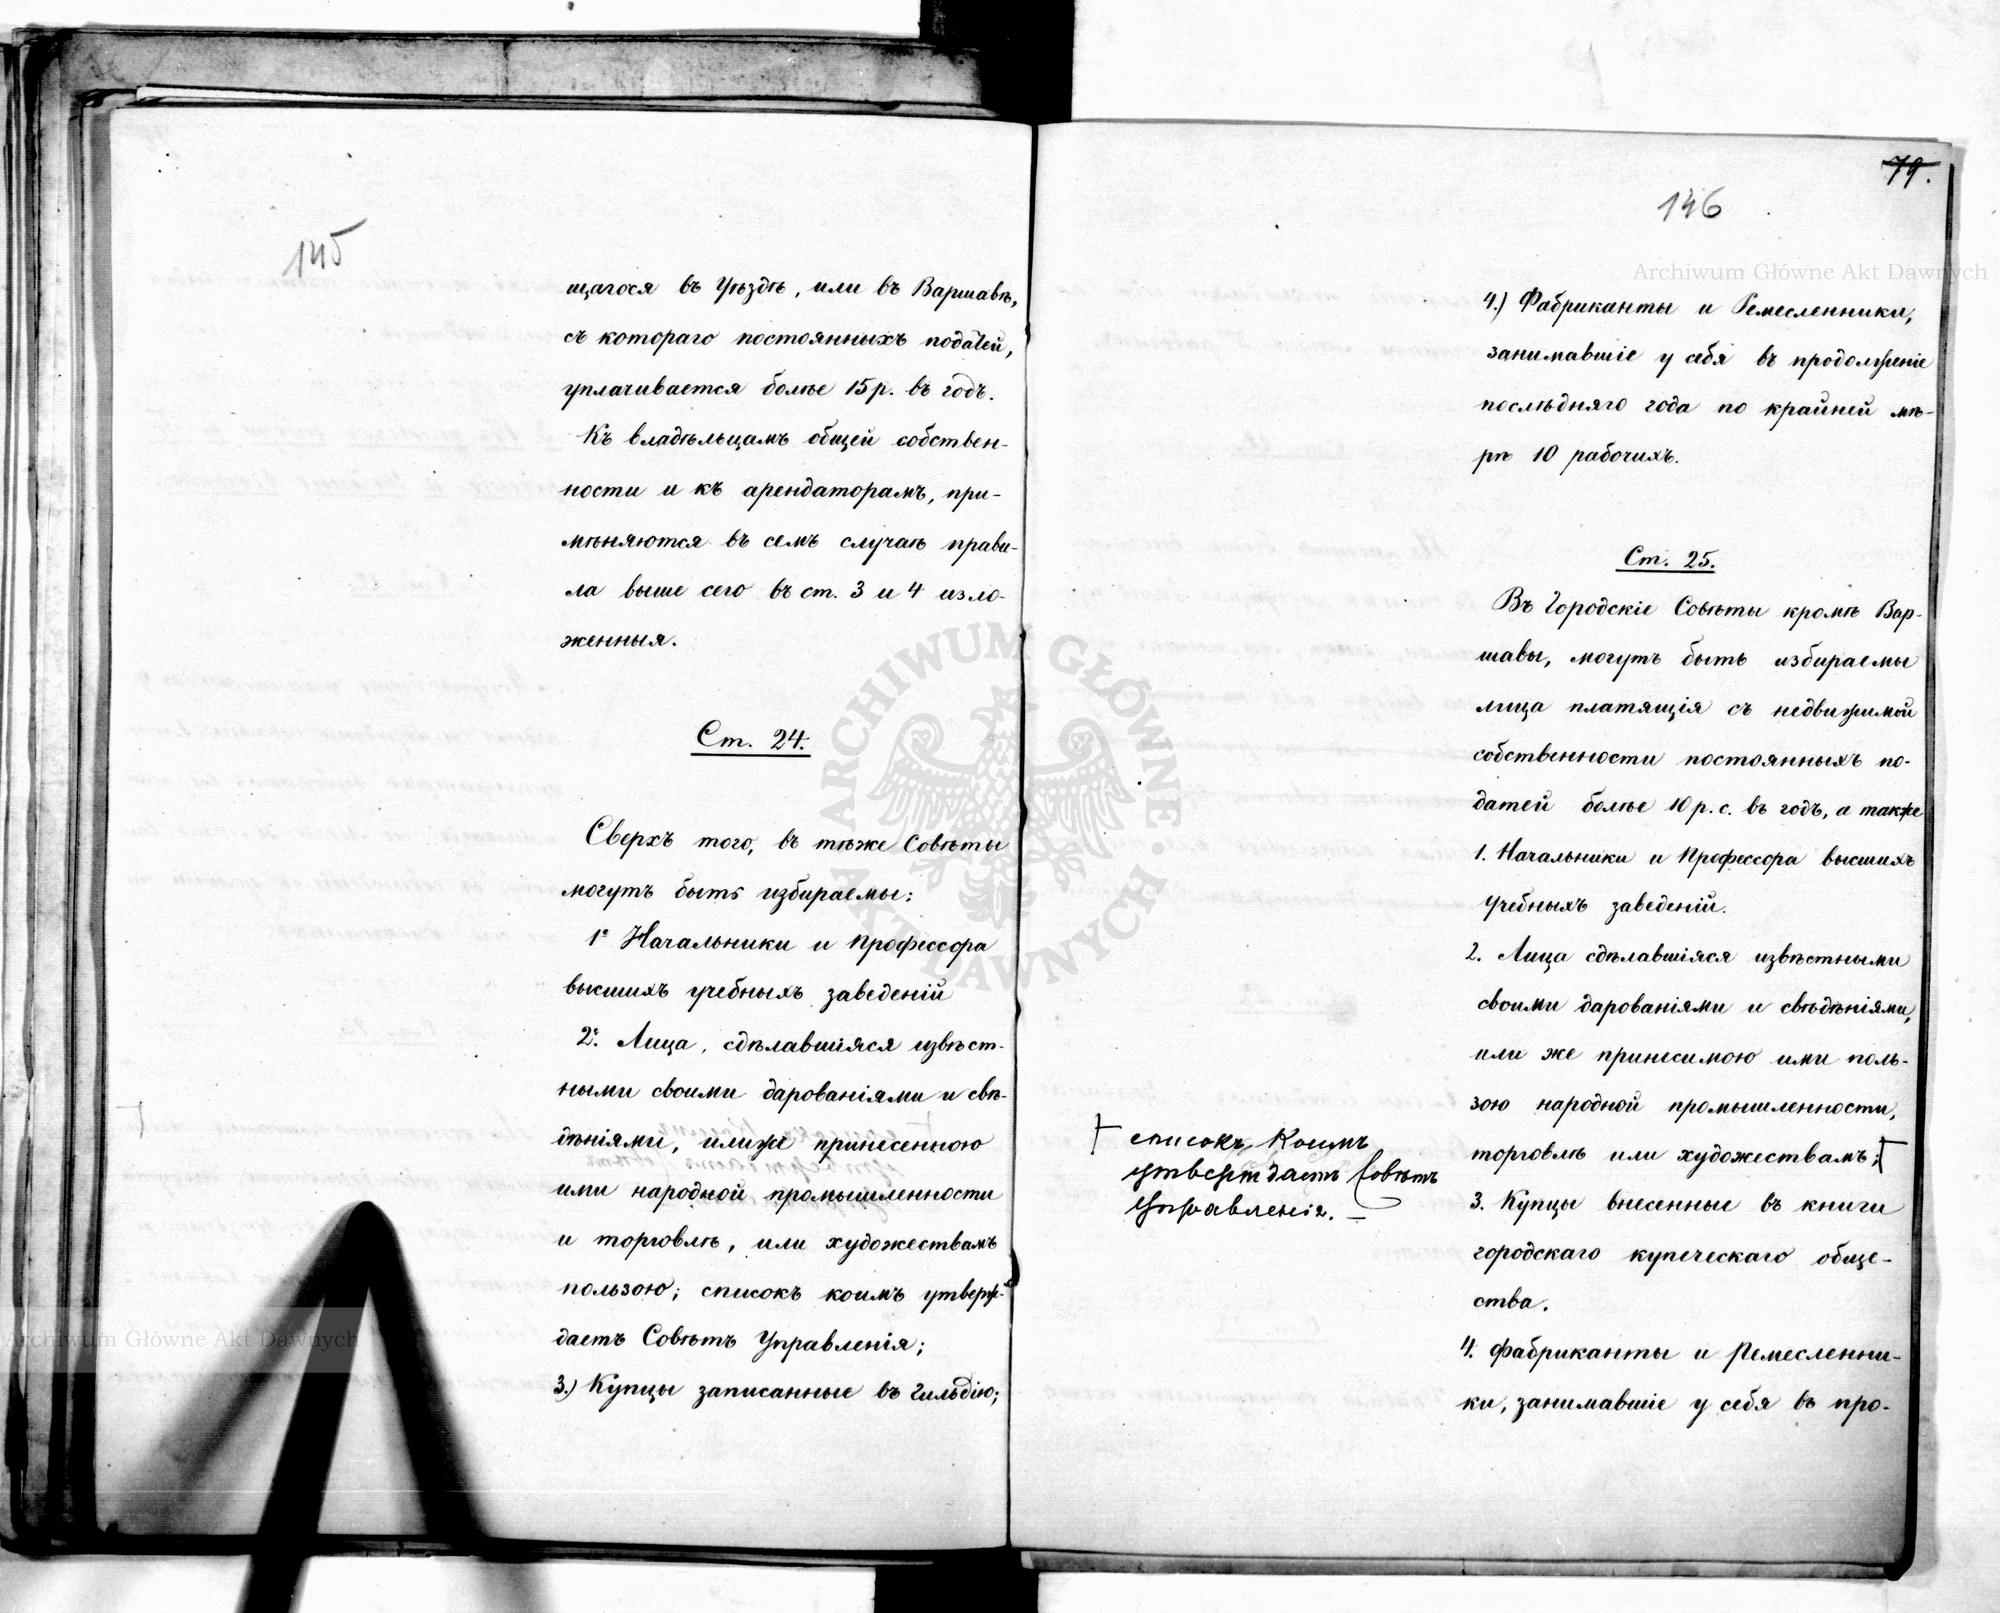 145
щагося въ Уѣздѣ, или въ Варшавѣ,
съ котораго постоянныхъ податей,
уплачивается болѣе 15 р. въ годъ.
Къ владѣльцамъ общей собствен-
ности и къ арендаторамъ, при-
мѣняются въ семъ случаѣ прави-
ла выше сего въ ст. 3 и 4 изло-
женныя.
Ст. 24.
Сверхъ того, въ тѣже Совѣты
могутъ быть избираемы:
1º Начальники и Профессора
высшихъ учебныхъ заведеній
2º. Лица, сдѣлавшіяся извѣст-
ными своими дарованіями и свѣ-
дѣніями, или же принесенною
ими народной промышленности
и торговлѣ, или художествамъ
пользою; списокъ коимъ утверж-
даетъ Совѣтъ Управленія;
3.) Купцы записанные въ Гильдію;
79.
146
4.) Фабриканты и Ремесленники,
занимавшіе у себя въ продолженіе
послѣдняго года по крайней мѣ-
рѣ 10 рабочихъ.
Ст. 25.
Въ Городскіе Совѣты кромѣ Вар-
шавы, могутъ быть избираемы
лица платящія съ недвижимой
собственности постоянныхъ по-
датей болѣе 10 р. с. въ годъ, а также
1. Начальники и Профессора высшихъ
учебныхъ заведеній.
2. Лица сдѣлавшіяся извѣстными
своими дарованіями и свѣдѣніями,
или же приносимою ими поль-
зою народной промышленности,
торговлѣ или художествамъ;
списокъ коимъ
утверждаетъ Совѣтъ
Управленія.
3. Купцы внесенные въ книги
городскаго купеческаго обще-
ства.
4. Фабриканты и Ремесленни-
ки, занимавшіе у себя въ про-
Archiwum Główne Akt Dawnych
Archiwum Główne Akt Dawnych
ARCHIWUM GŁÓWNE AKT DAWNYCH